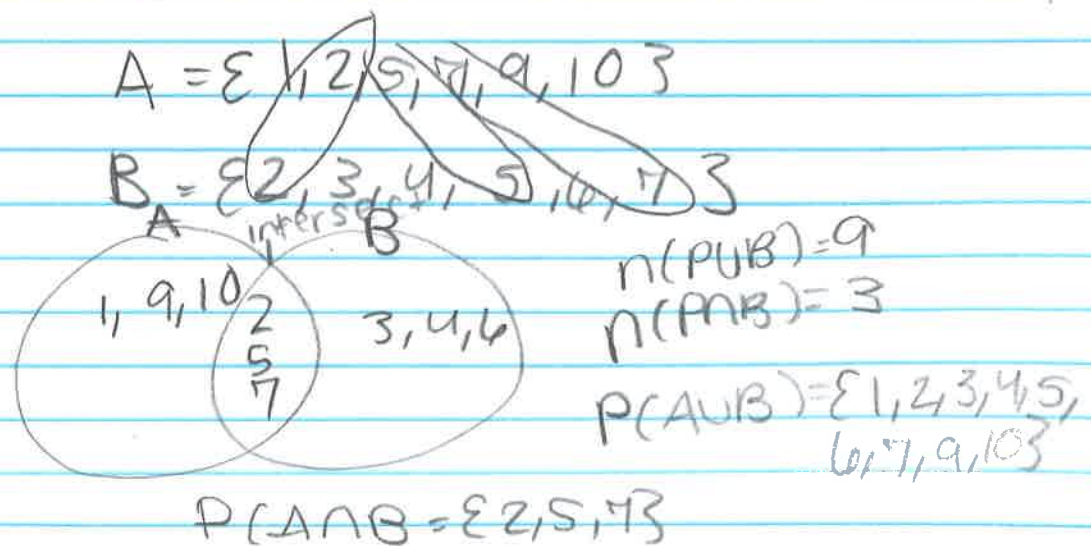 A = { 1, 2, 5, 7, 9, 10 }
B = { 2, 3, 4, 5, 6, 7 }
intersect
A B
1, 9, 10
2
5
7
3, 4, 6
n(PUB) = 9
n(P∩B) = 3
P(AUB) = { 1, 2, 3, 4, 5,
6, 7, 9, 10 }
P(A∩B = { 2, 5, 7 }